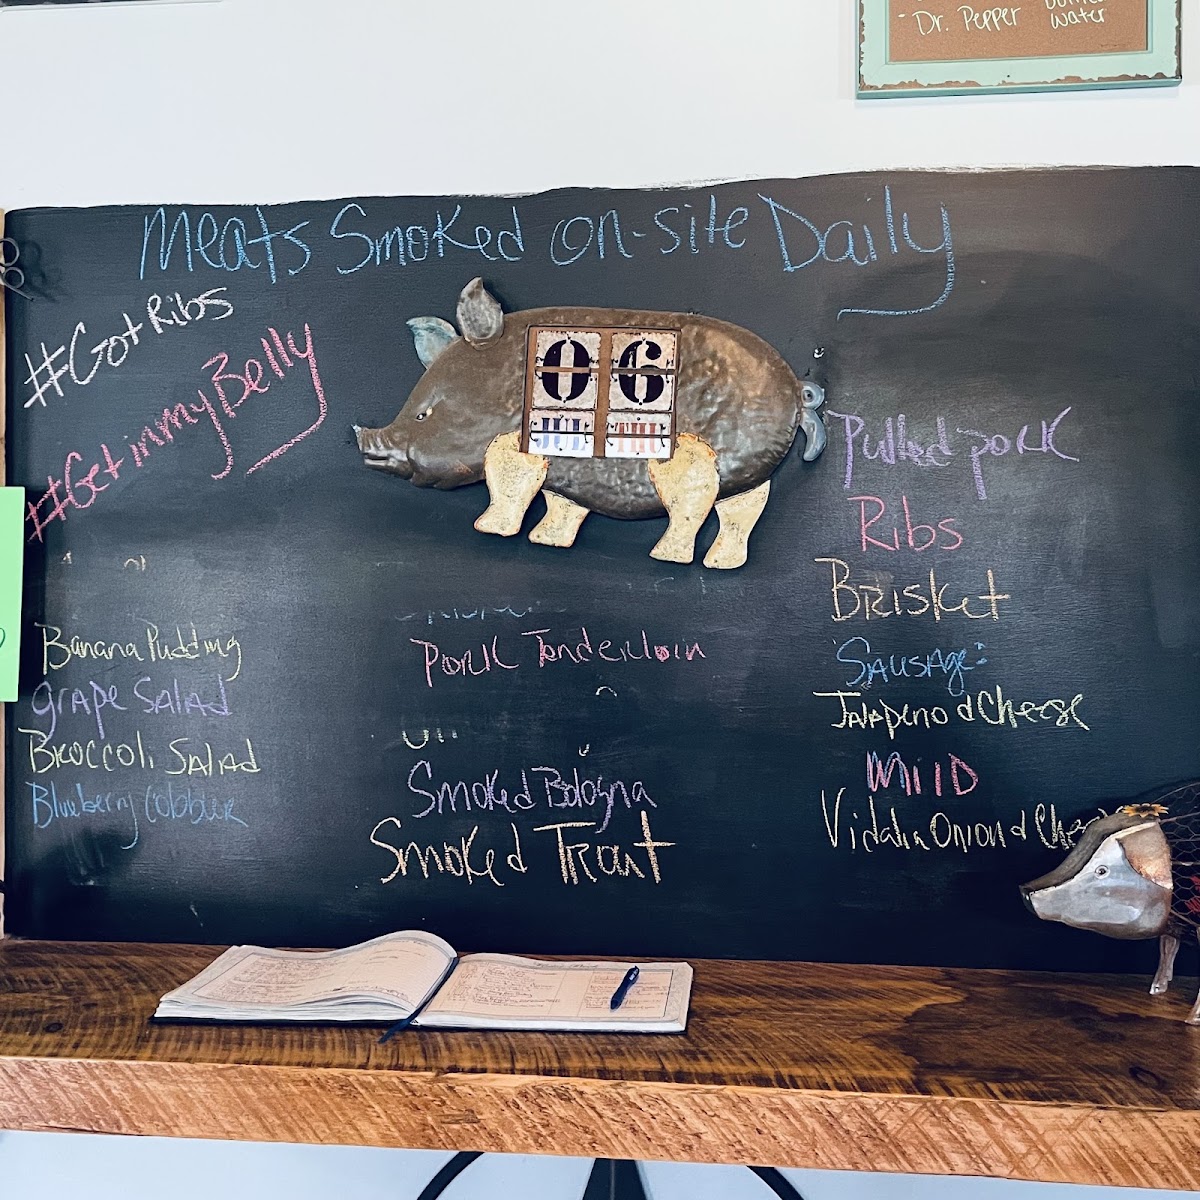 - Dr. Pepper
water
Meats Smoked on-site Daily
#Got Ribs
#Get in my Belly
06
JUL THU
Banana Pudding
Grape Salad
Broccoli Salad
Blueberry Cobbler
Pork Tenderloin
Smoked Bologna
Smoked Trout
Pulled pork
Ribs
Brisket
Sausage:
Jalapeno & Cheese
Mild
Vidalia Onion &